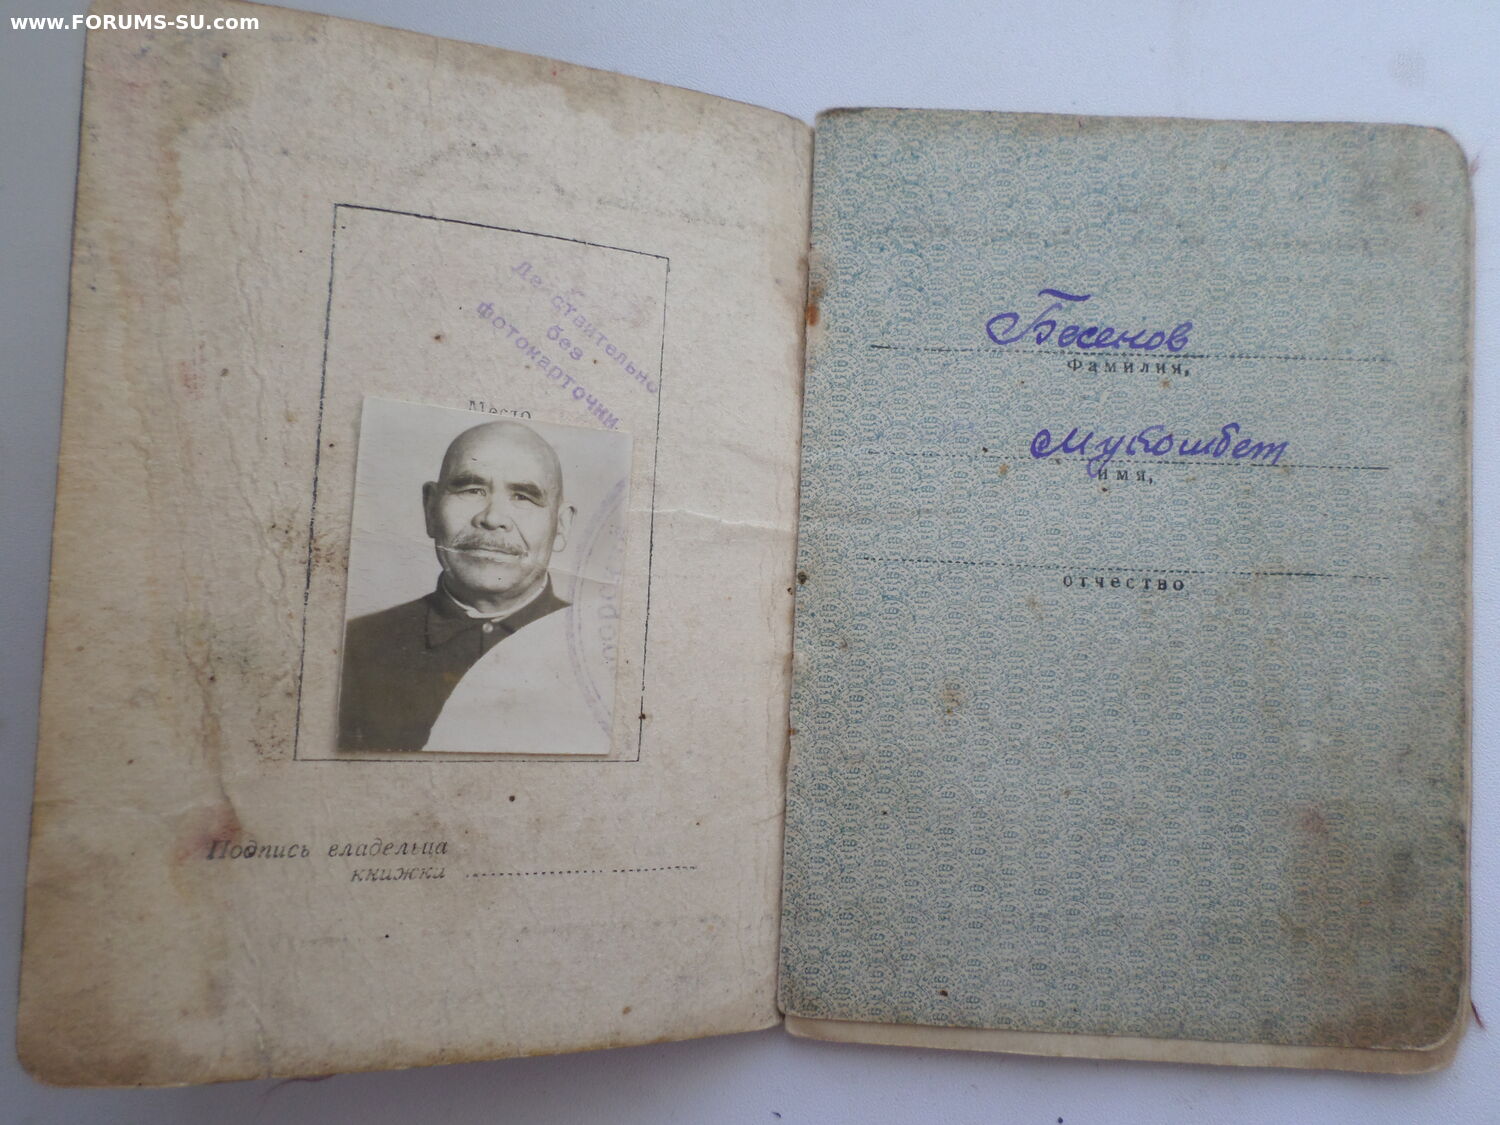 www.FORUMS-SU.com
Действительно
без
фотокарточки
Место
Подпись владельца
книжки
Бесенов
Фамилия,
Мукошбет
имя,
отчество